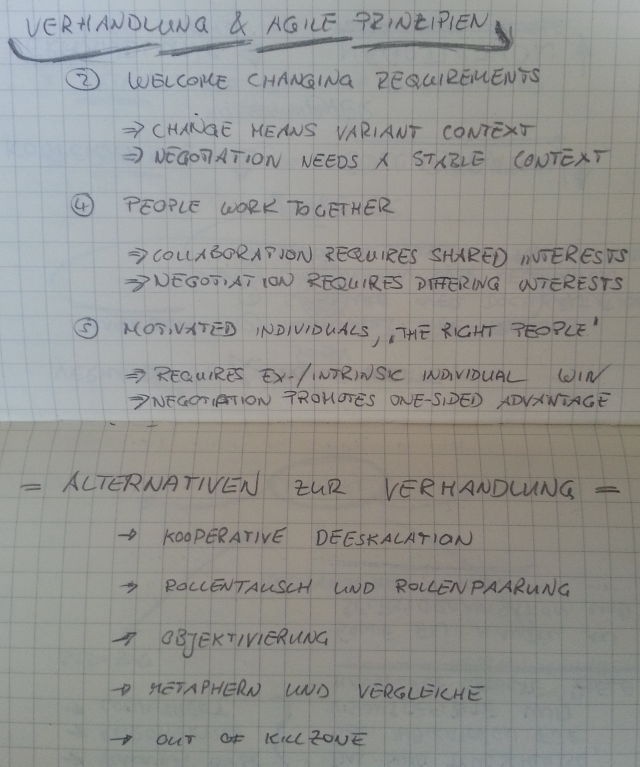 VERHANDLUNG & AGILE PRINZIPIEN
② WELCOME CHANGING REQUIREMENTS
⇒ CHANGE MEANS VARIANT CONTEXT
⇒ NEGOTIATION NEEDS A STABLE CONTEXT
④ PEOPLE WORK TOGETHER
⇒ COLLABORATION REQUIRES SHARED INTERESTS
⇒ NEGOTIATION REQUIRES DIFFERING INTERESTS
⑤ MOTIVATED INDIVIDUALS, „THE RIGHT PEOPLE"
⇒ REQUIRES EX-/INTRINSIC INDIVIDUAL WIN
⇒ NEGOTIATION PROMOTES ONE-SIDED ADVANTAGE
= ALTERNATIVEN ZUR VERHANDLUNG =
→ KOOPERATIVE DEESKALATION
→ ROLLENTAUSCH UND ROLLENPAARUNG
→ OBJEKTIVIERUNG
→ METAPHERN UND VERGLEICHE
→ OUT OF KILLZONE